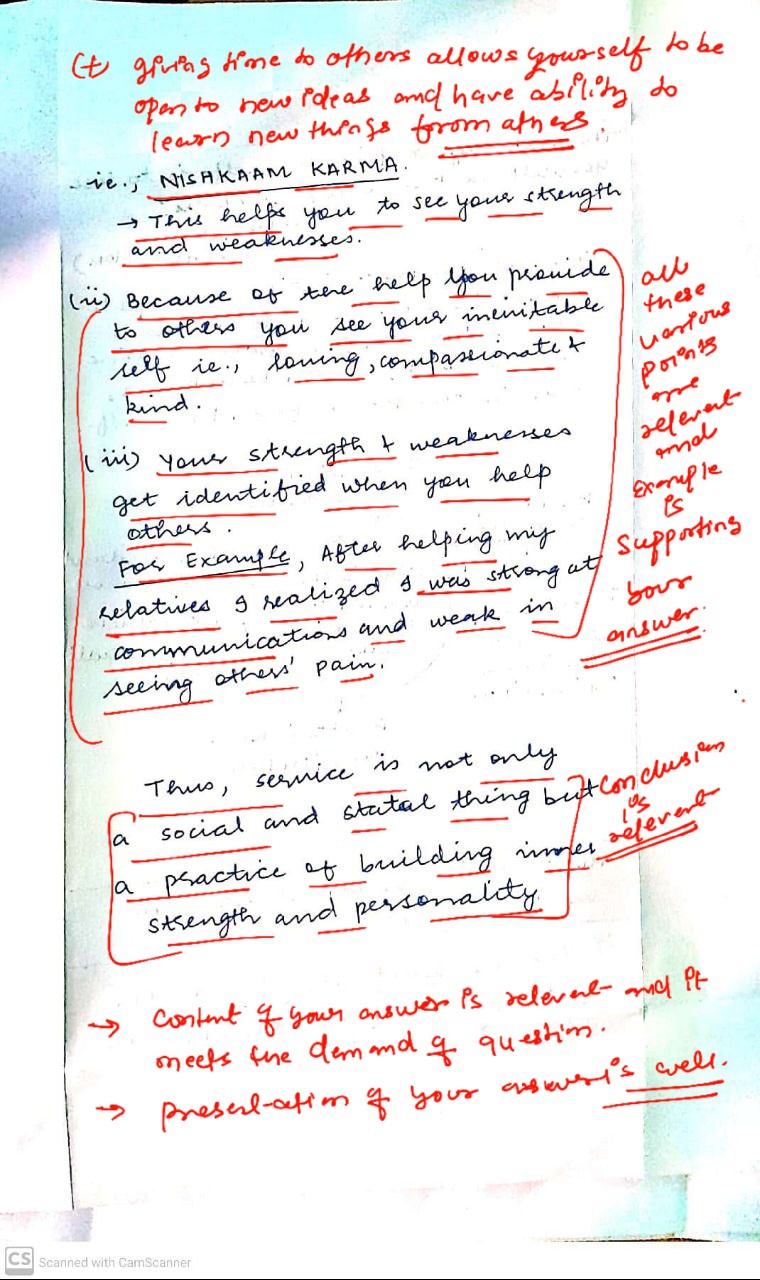 (t giving time to others allows yourself to be
open to new ideas and have ability to
learn new things from others.
ie., NISHKAAM KARMA.
→ This helps you to see your strength
and weaknesses.
(ii) Because of the help you provide
to others you see your inevitable
self ie., loving, compassionate &
kind.
(iii) your strength & weaknesses
get identified when you help
others.
For Example, After helping my
relatives I realized I was strong at
communications and weak in
seeing others' pain.
all
these
various
points
are
relevent
and
Example
is
supporting
your
answer.
Thus, service is not only
a social and statal thing but
a practice of building inner
strength and personality
Conclusion
is
relevent
→ Content of your answer is relevent and it
meets the demand of question.
→ presentation of your answer is well.
CS Scanned with CamScanner